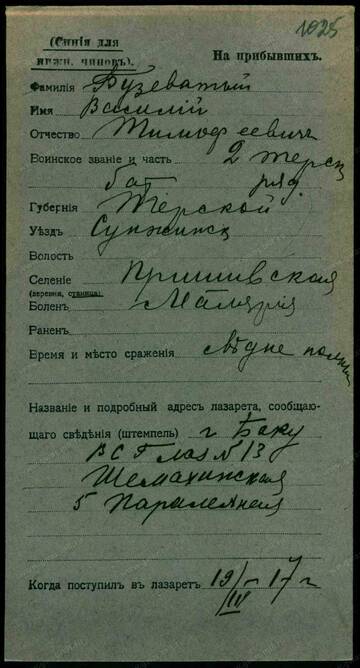 1025
(Синія для
нижн. чиновъ).
На прибывшихъ.
Фамилія Бузеватый
Имя Василій
Отчество Тимофеевичъ
Воинское званіе и часть 2 терск
бат ряд.
Губернія Терской
Уѣздъ Сунженск
Волость
Селеніе
(деревня, станица)
Боленъ Малярія
Раненъ
Время и мѣсто сраженія
Названіе и подробный адресъ лазарета, сообщаю-
щаго свѣдѣнія (штемпель) г Баку
В С Г Лаз N 13
Шемахинская
5 Паралельная
Когда поступилъ въ лазаретъ 19/III 17 г